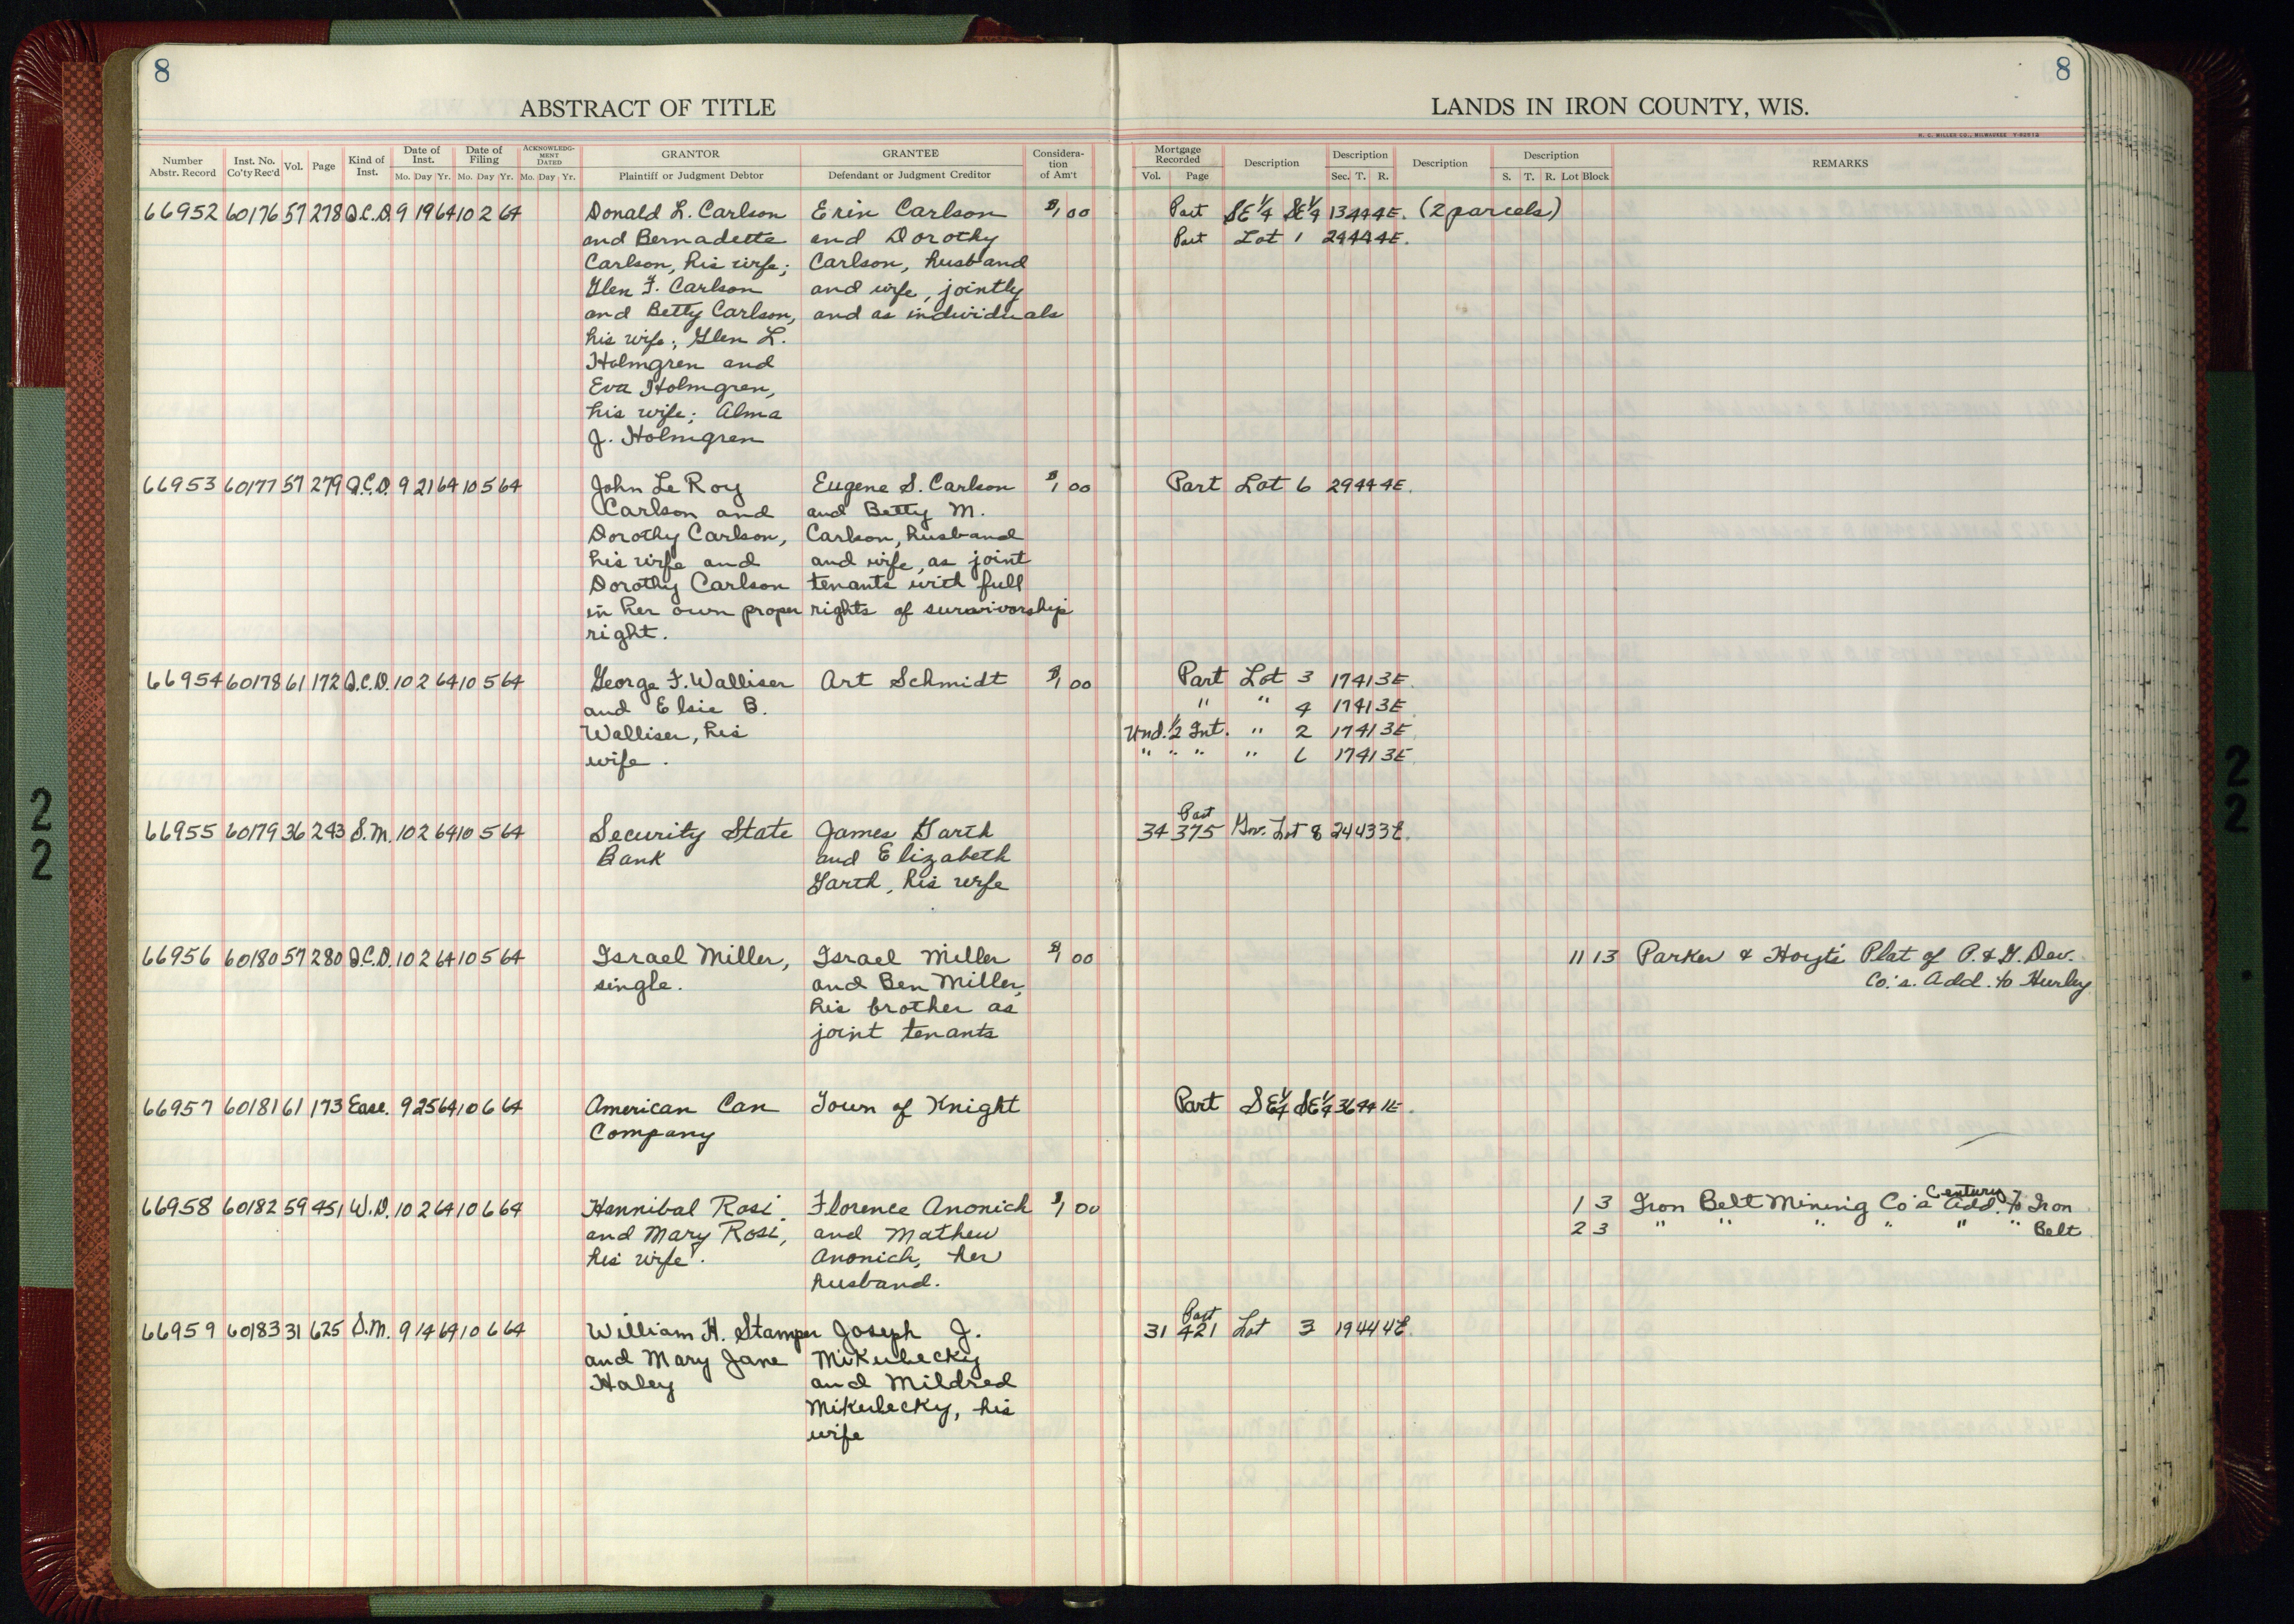 8
8
ABSTRACT OF TITLE
LANDS IN IRON COUNTY, WIS.
H. C. MILLER CO., MILWAUKEE
Number Abstr. Record
Inst. No. Co'ty Rec'd
Vol.
Page
Kind of Inst.
Date of Inst.
Mo. Day Yr.
Date of Filing
Mo. Day Yr.
ACKNOWLEDG-MENT DATED
Mo. Day Yr.
GRANTOR
Plaintiff or Judgment Debtor
GRANTEE
Defendant or Judgment Creditor
Considera-tion of Am't
Mortgage Recorded
Vol. Page
Description
Description
Sec. T. R.
Description
Description
S. T. R. Lot Block
REMARKS
66952 60176 57 278 Q.C.D. 9 19 64 10 2 64 Donald L. Carlson Erin Carlson $1 00 Part SE 1/4 SE 1/4 13 44 4E. (2 parcels)
and Bernadette and Dorothy Part Lot 1 24 44 4E.
Carlson, his wife; Carlson, husband
Glen F. Carlson and wife, jointly
and Betty Carlson, and as individuals
his wife; Glen L.
Holmgren and
Eva Holmgren,
his wife; Alma
J. Holmgren
66953 60177 57 279 Q.C.D. 9 21 64 10 5 64 John Le Roy Eugene S. Carlson $1 00 Part Lot 6 29 44 4E.
Carlson and and Betty M.
Dorothy Carlson, Carlson, husband
his wife and and wife, as joint
Dorothy Carlson tenants with full
in her own proper rights of survivorship
right.
66954 60178 61 172 Q.C.D. 10 2 64 10 5 64 George F. Walliser Art Schmidt $1 00 Part Lot 3 17 41 3E
and Elsie B. " " 4 17 41 3E
Walliser, his Und. 1/2 Int. " 2 17 41 3E
wife. " " " " 6 17 41 3E
Part
66955 60179 36 243 S.M. 10 2 64 10 5 64 Security State James Garth 34 375 Gov. Lot 8 24 43 3E.
Bank and Elizabeth
Garth, his wife
66956 60180 57 280 Q.C.D. 10 2 64 10 5 64 Israel Miller, Israel Miller $1 00 11 13 Parker & Hoyt's Plat of P. & G. Dev.
single. and Ben Miller, Co.'s. Add. to Hurley
his brother as
joint tenants
66957 60181 61 173 Ease. 9 25 64 10 6 64 American Can Town of Knight Part SE 1/4 SE 1/4 36 44 1E.
Company
Century
66958 60182 59 451 W.D. 10 2 64 10 6 64 Hannibal Rosi Florence Anonich $1 00 1 3 Iron Belt Mining Co's Add. to Iron
and Mary Rosi, and Mathew 2 3 " " " " " " Belt
his wife. Anonich, her
husband.
Part
66959 60183 31 625 S.M. 9 14 64 10 6 64 William H. Stamper Joseph J. 31 421 Lot 3 19 44 4E.
and Mary Jane Mikulecky
Haley and Mildred
Mikulecky, his
wife
2
2
2
2
2